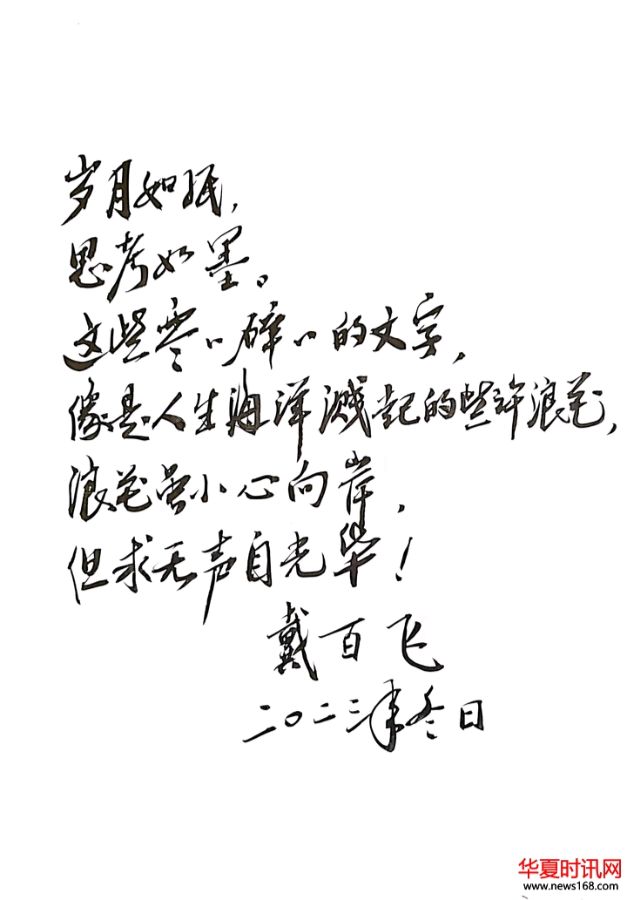 岁月如纸，
思考如墨。
这些零零碎碎的文字，
像是人生海洋溅起的些许浪花，
浪花虽小心向岸，
但求无声自光华！
戴百飞
二〇二三年冬日
华夏时讯网
www.news168.com